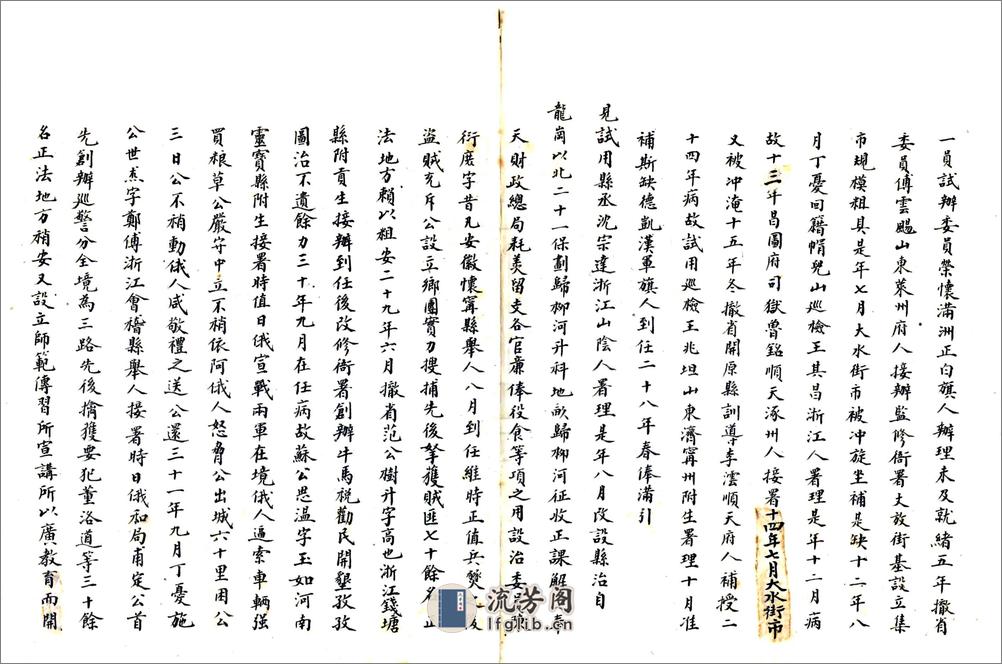 一員試辦委員榮懷滿洲正白旗人辦理未及就緒五年撤省
委員傅雲颺山東萊州府人接辦監修衙署丈放街基設立集
市規模粗具是年七月大水街市被冲旋坐補是缺十二年八
月丁憂回籍帽兒山巡檢王其昌浙江人署理是年十二月病
故十三年昌圖府司獄曾銘順天涿州人接署十四年七月大水街市
又被冲淹十五年冬撤省開原縣訓導李澐順天府人補授二
十四年病故試用巡檢王兆坦山東濟甯州附生署理十月准
補斯缺德凱漢軍旗人到任二十八年春俸滿引
見試用縣丞沈宗達浙江山陰人署理是年八月改設縣治自
龍崗以北二十一保劃歸柳河升科地畝歸柳河征收正課解奉
天財政總局耗羡留支各官亷俸役食等項之用設治委員陳
衍庶字昔凡安徽懷寗縣舉人八月到任維時正值兵燹
盜賊充斥公設立鄉團實力搜捕先後拏獲賊匪七十餘名正
法地方賴以粗安二十九年六月撤省范公樹升字高也浙江錢塘
縣附貢生接辦到任後改修衙署創辦牛馬稅勸民開墾孜孜
圖治不遺餘力三十年九月在任病故蘇公思温字玉如河南
靈寶縣附生接署時值日俄宣戰兩軍在境俄人逼索車輛强
買粮草公嚴守中立不稍依阿俄人怒脅公出城六十里困公
三日公不稍動俄人咸敬禮之送公還三十一年九月丁憂施
公世杰字鄭傅浙江會稽縣舉人接署時日俄和局甫定公首
先創辦巡警分全境為三路先後擒獲要犯董洛道等三十餘
名正法地方稍安又設立師範傳習所宣講所以廣教育而開
流芳阁
lfglib.cn